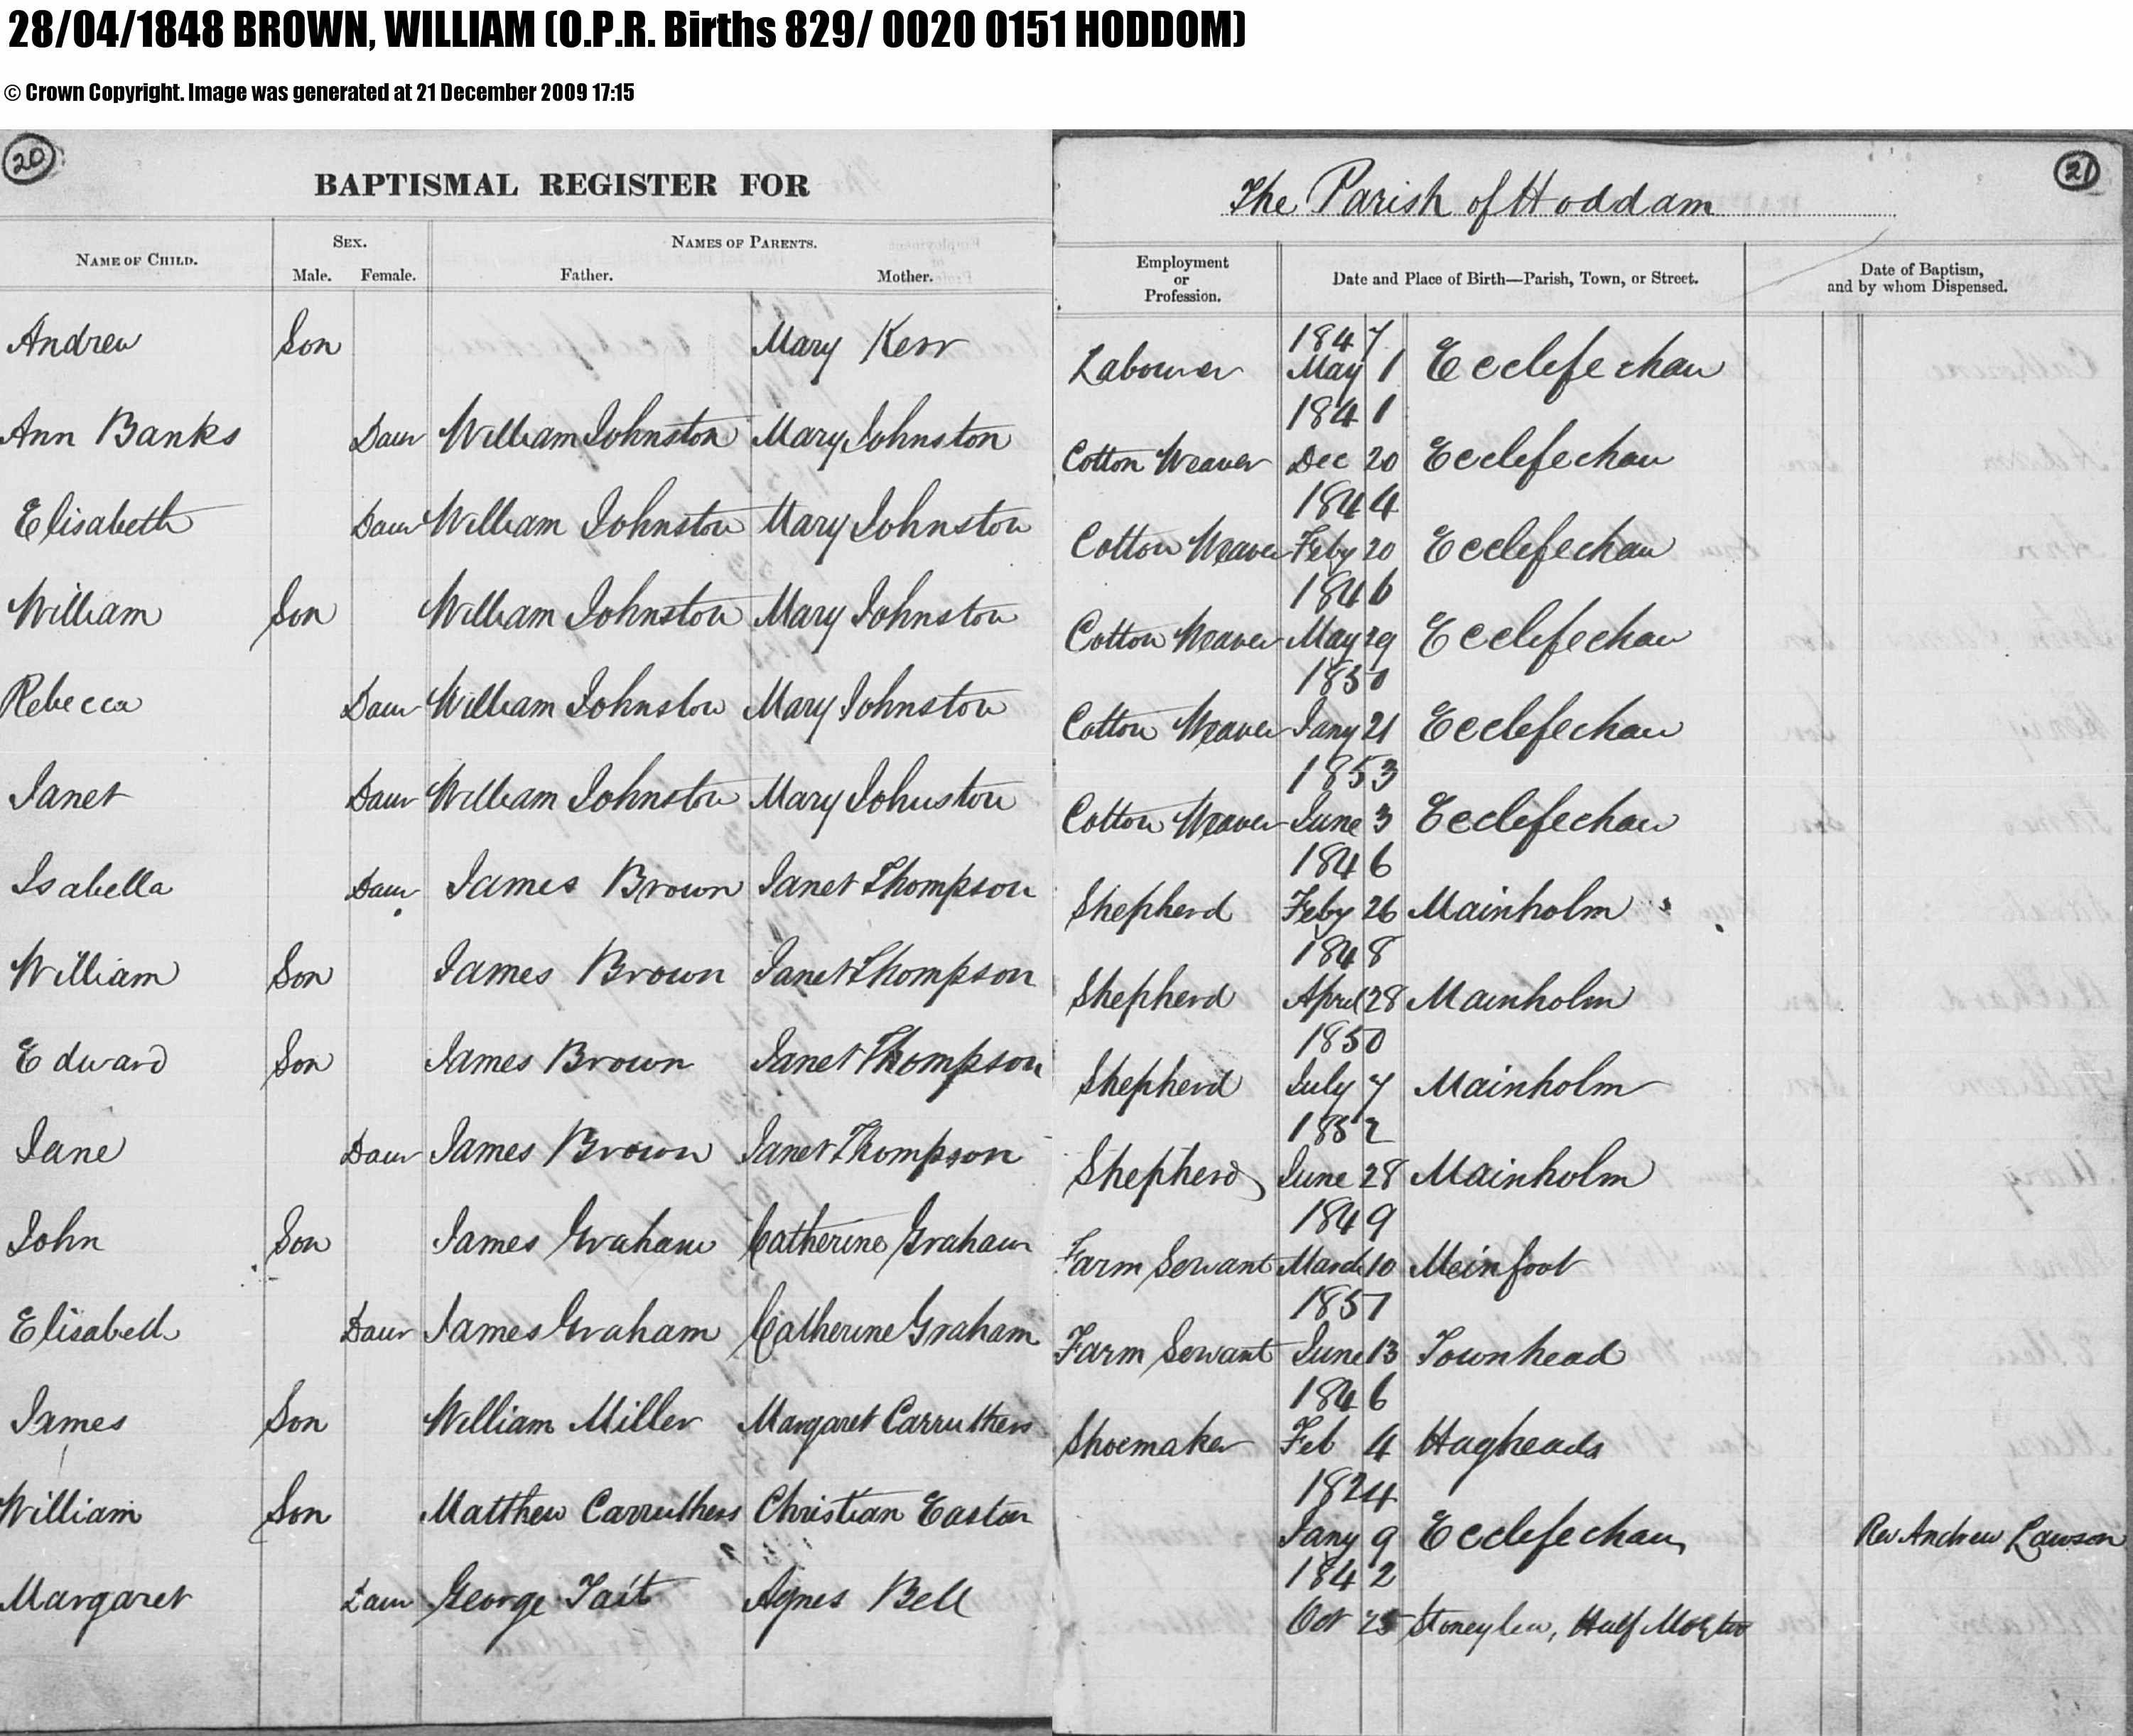 28/04/1848 BROWN, WILLIAM (O.P.R. Births 829/ 0020 0151 HODDOM)
© Crown Copyright. Image was generated at 21 December 2009 17:15
20
BAPTISMAL REGISTER FOR
The Parish of Hoddam
21
NAME OF CHILD. SEX. Male. Female. NAMES OF PARENTS. Father. Mother. Employment or Profession. Date and Place of Birth—Parish, Town, or Street. Date of Baptism, and by whom Dispensed.
1847
Andrew Son Mary Kerr Labourer May 1 Ecclefechan
1841
Ann Banks Daur William Johnston Mary Johnston Cotton Weaver Dec 20 Ecclefechan
1844
Elisabeth Daur William Johnston Mary Johnston Cotton Weaver Feby 20 Ecclefechan
1846
William Son William Johnston Mary Johnston Cotton Weaver May 29 Ecclefechan
1850
Rebecca Daur William Johnston Mary Johnston Cotton Weaver Jany 21 Ecclefechan
1853
Janet Daur William Johnston Mary Johnston Cotton Weaver June 3 Ecclefechan
1846
Isabella Daur James Brown Janet Thompson Shepherd Feby 26 Mainholm
1848
William Son James Brown Janet Thompson Shepherd April 28 Mainholm
1850
Edward Son James Brown Janet Thompson Shepherd July 7 Mainholm
1852
Jane Daur James Brown Janet Thompson Shepherd June 28 Mainholm
1849
John Son James Graham Catherine Graham Farm Servant March 10 Meinfoot
1851
Elisabeth Daur James Graham Catherine Graham Farm Servant June 13 Townhead
1846
James Son William Miller Margaret Carruthers Shoemaker Feb 4 Hagheads
1824
William Son Matthew Carruthers Christian Easton Jany 9 Ecclefechan Rev Andrew Lawson
1842
Margaret Daur George Tait Agnes Bell Oct 25 Stoneylea, Half Morton